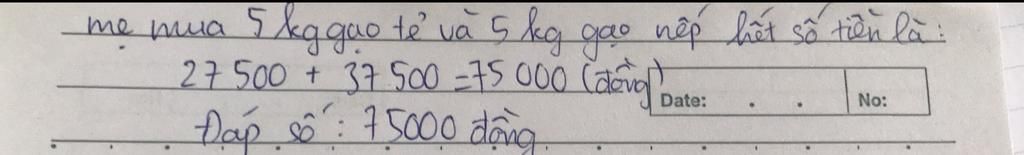 mẹ mua 5 kg gạo tẻ và 5 kg gạo nếp hết số tiền là:
27 500 + 37 500 = 75 000 (đồng)
Date: . . No:
Đáp số: 75000 đồng.